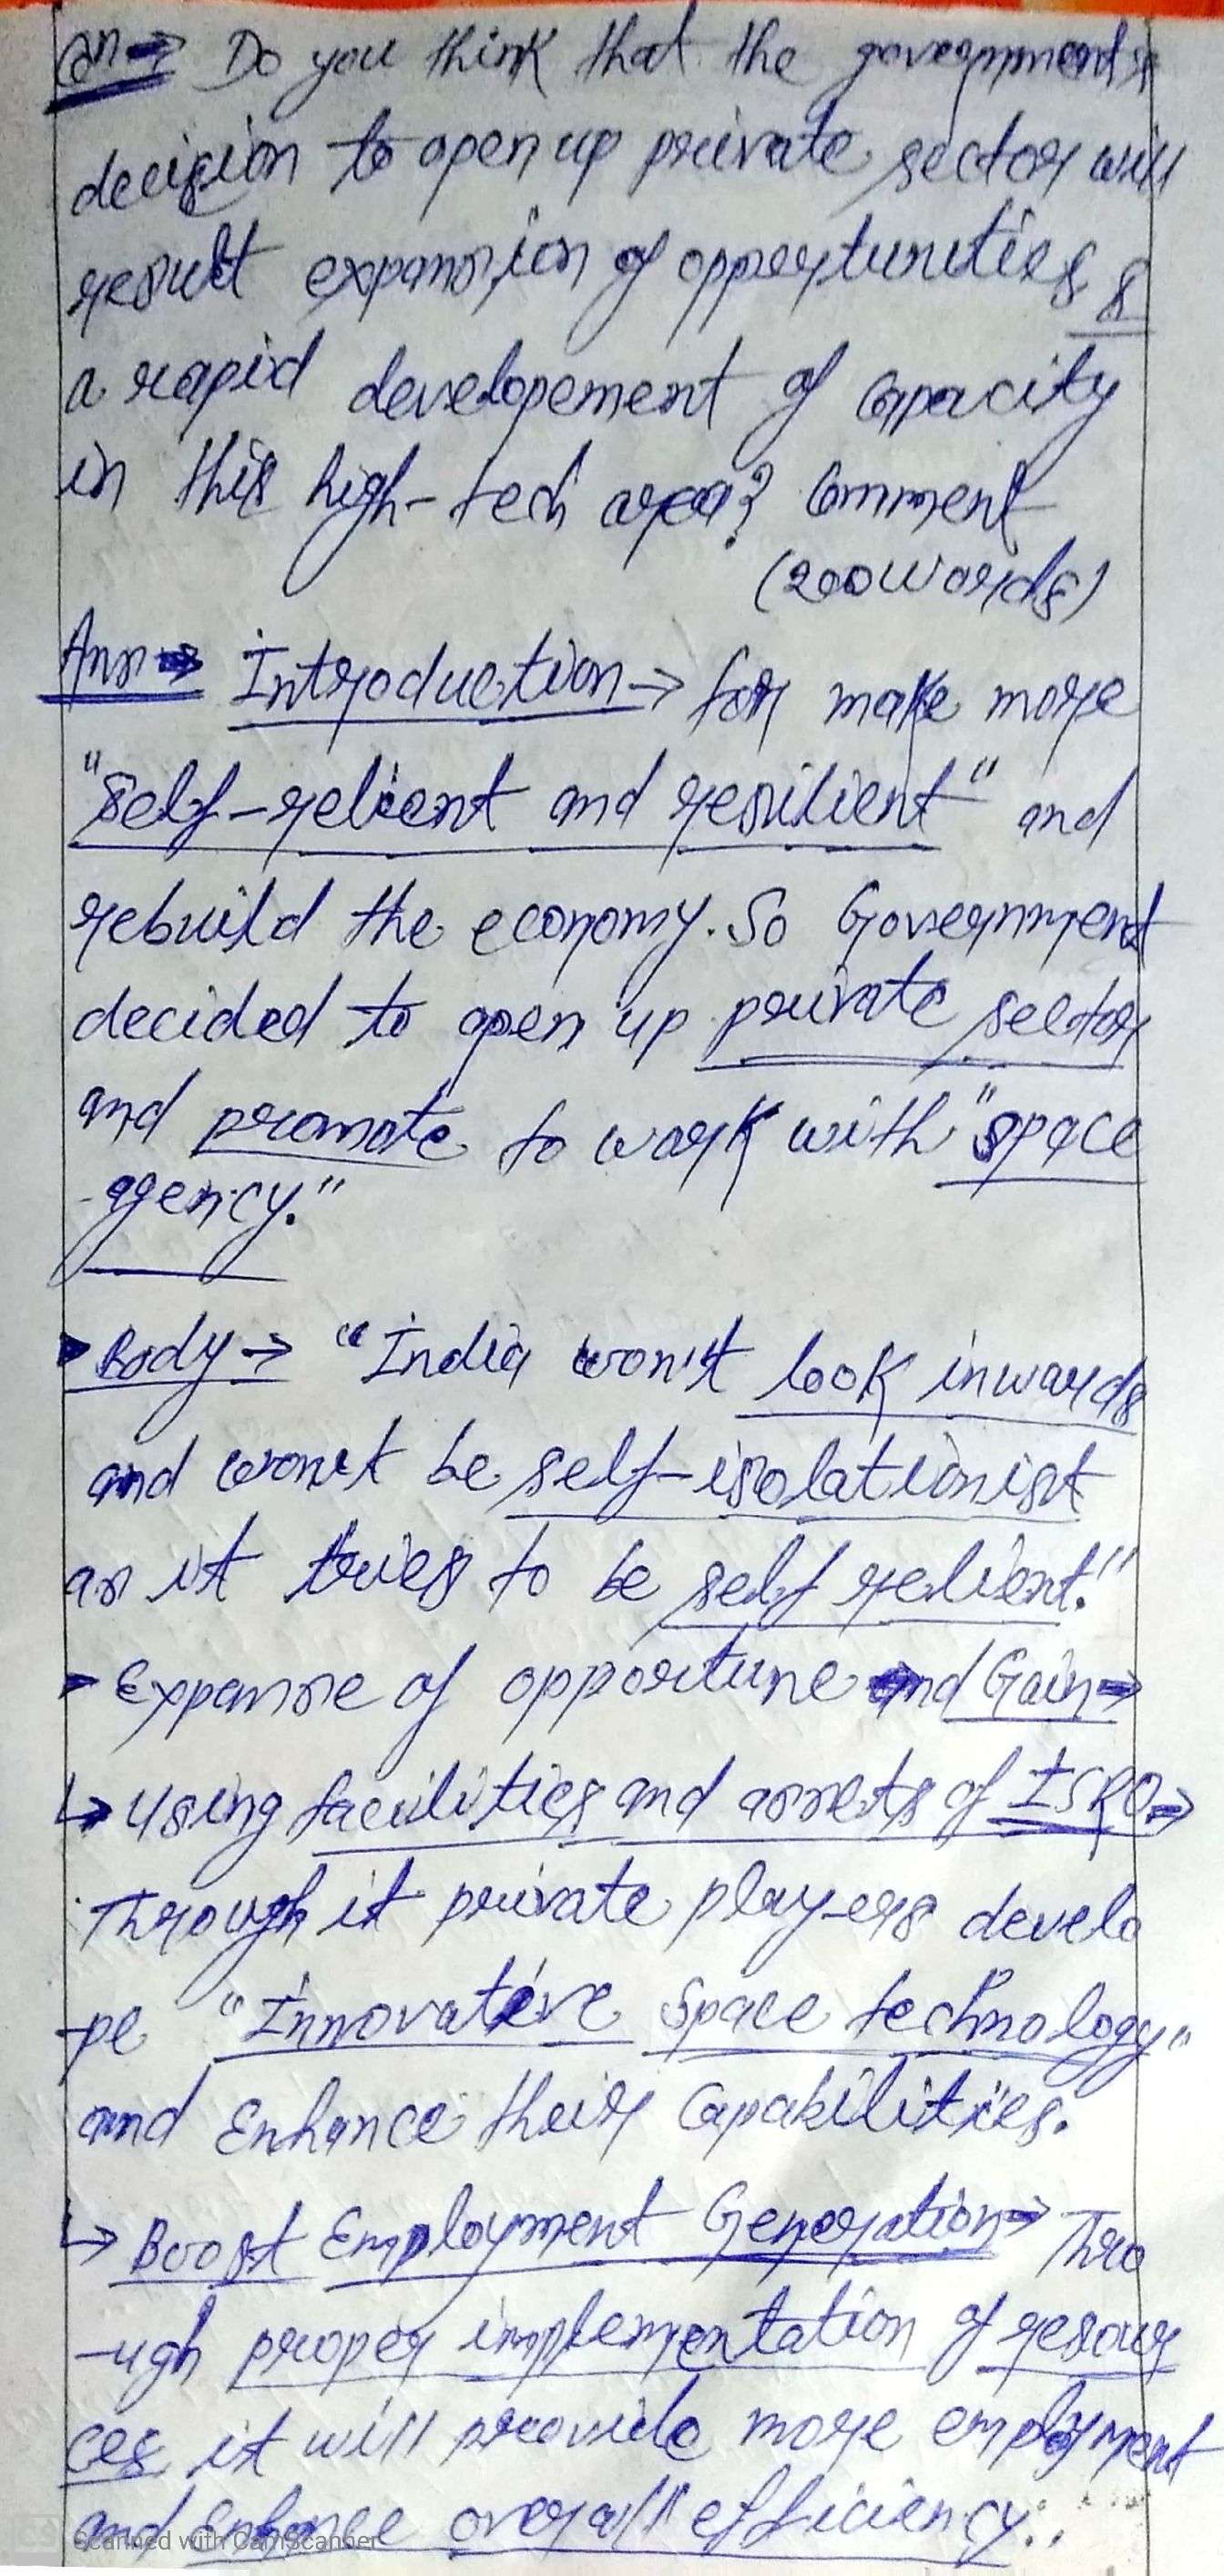 Qn → Do you think that the government's
decision to open up private sector will
result expansion of opportunities &
a rapid developement of capacity
in this high-tech area? Comment
(200 words)
Ans → Introduction → for make more
"self-relient and resilient" and
rebuild the economy. So Government
decided to open up private sector
and promote to work with "space
-agency."
Body → "India won't look inwards
and won't be self-isolationist
as it tries to be self relient."
Expanse of opportune and Gain →
↳ Using facilities and assets of ISRO →
Through it private players develo
-pe "Innovative Space technology"
and Enhance their Capabilities.
↳ Boost Employment Generation → Thro
-ugh proper implementation of resour
ces it will provide more employment
and Enhance overall efficiency..
Scanned with CamScanner